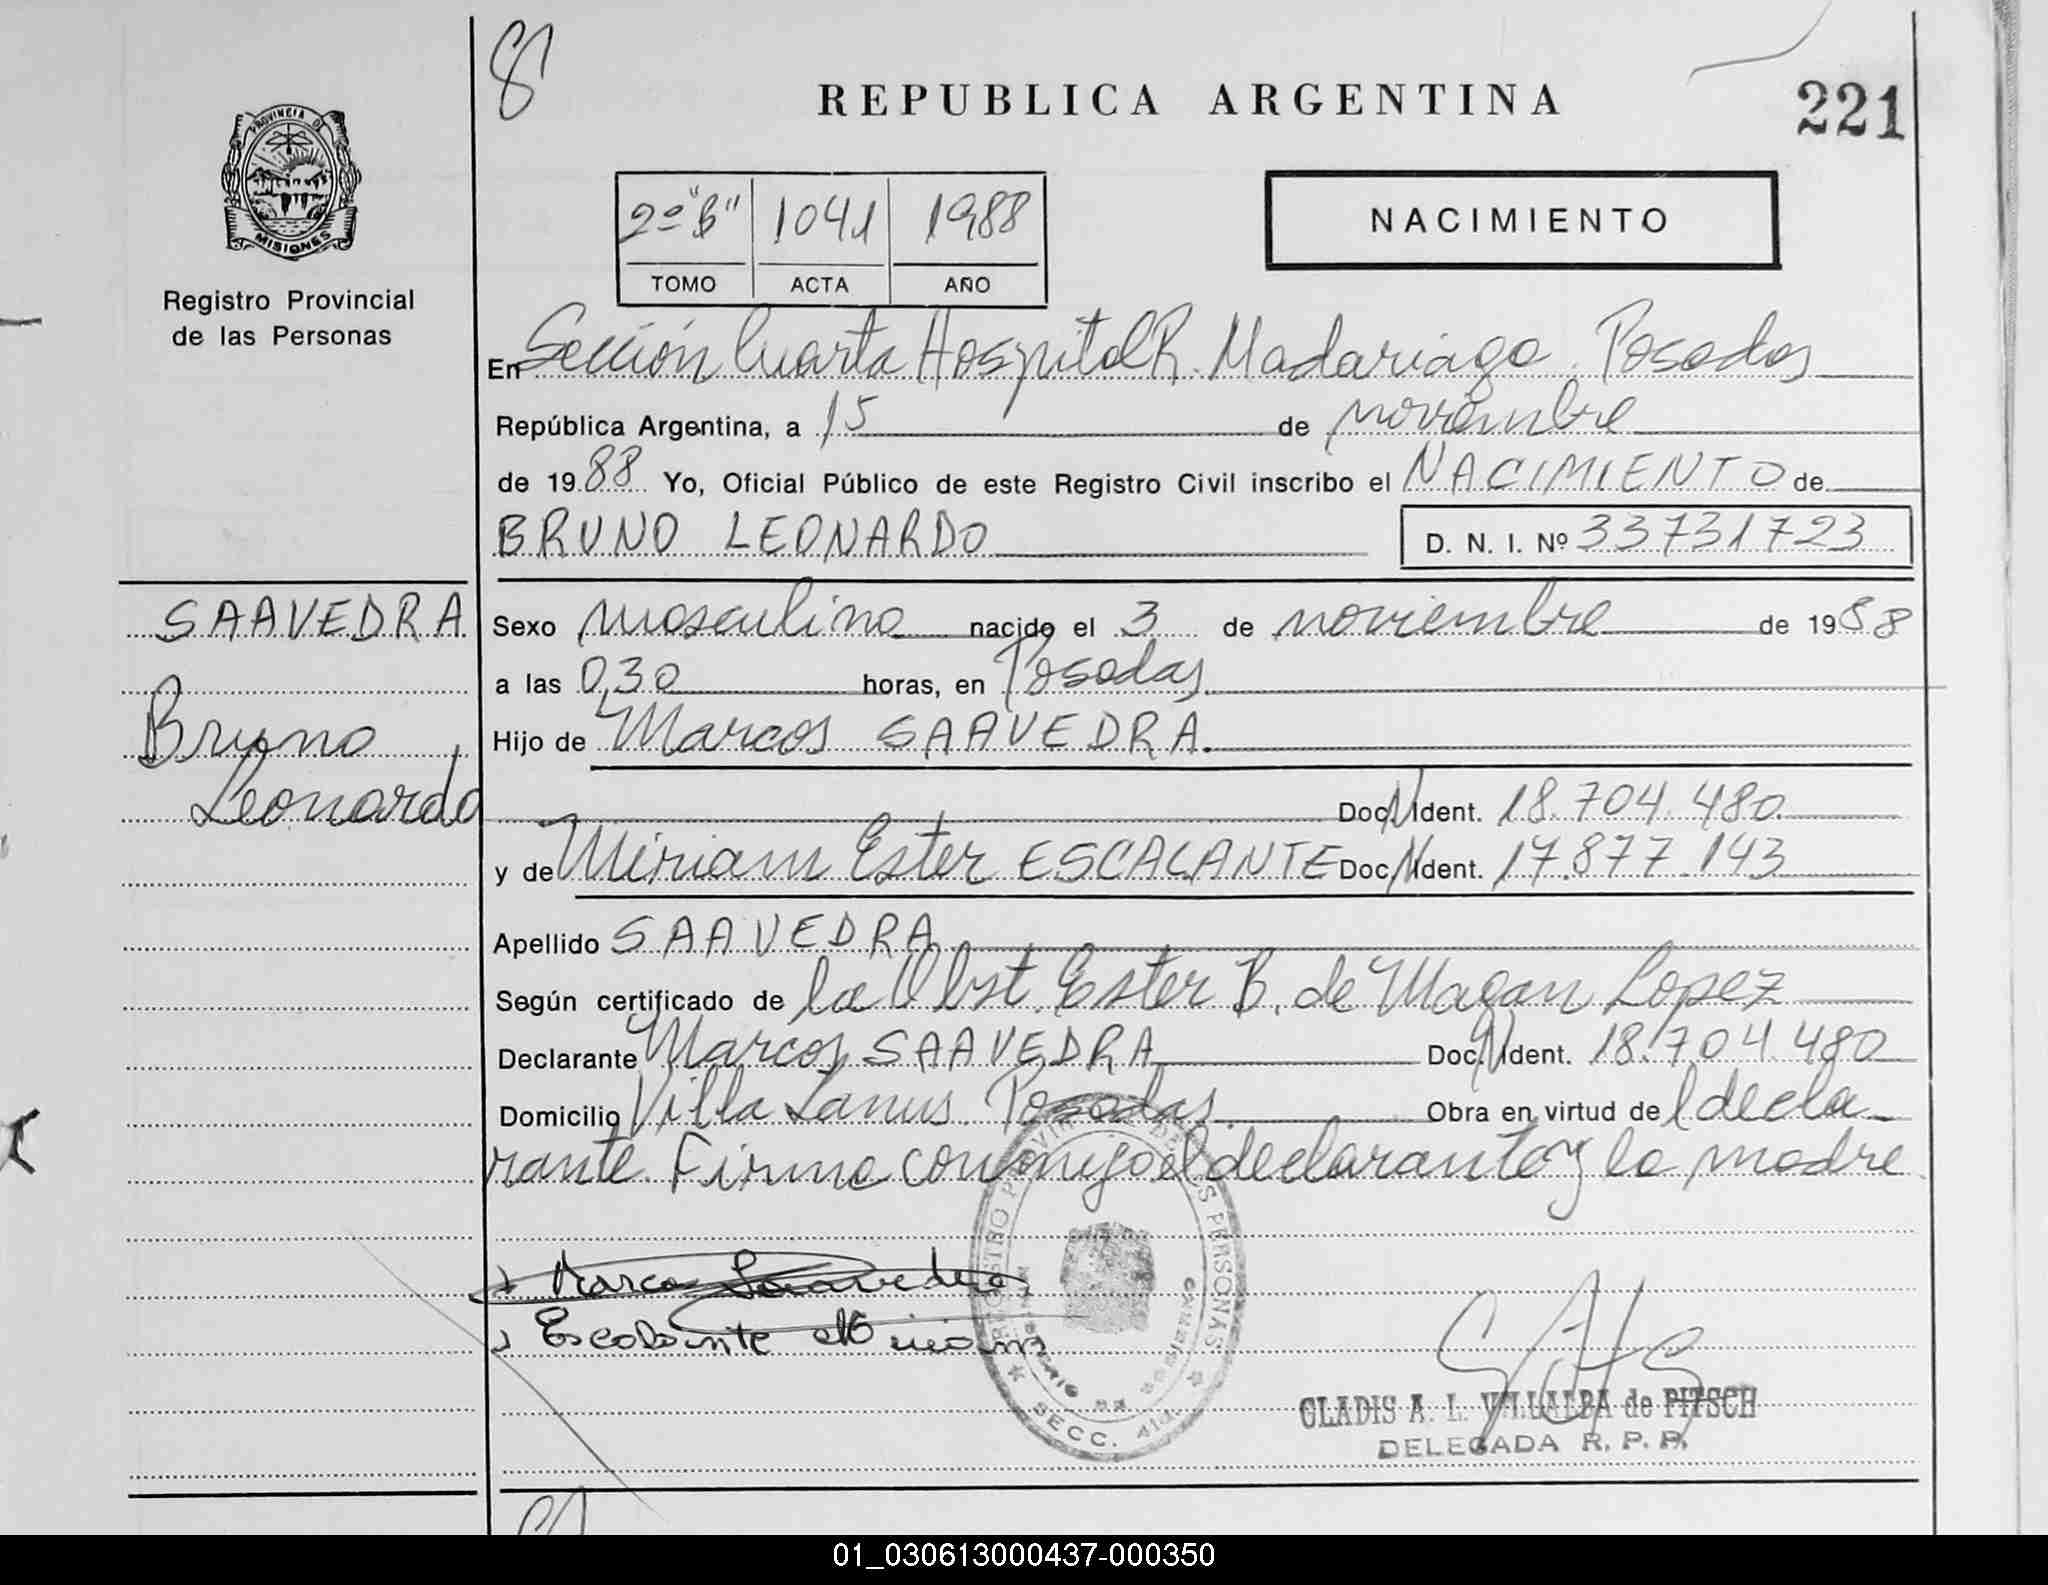 8
REPUBLICA ARGENTINA
221
PROVINCIA DE
MISIONES
Registro Provincial
de las Personas
2º "B" 1041 1988
TOMO ACTA AÑO
NACIMIENTO
En Sección Cuarta Hospital R. Madariaga. Posadas
República Argentina, a 15 de noviembre
de 1988 Yo, Oficial Público de este Registro Civil inscribo el NACIMIENTO de
BRUNO LEONARDO D. N. I. Nº 33731723
SAAVEDRA
Bruno
Leonardo
Sexo masculino nacido el 3 de noviembre de 1988
a las 0,30 horas, en Posadas
Hijo de Marcos SAAVEDRA.
Doc. N. Ident. 18.704.480
y de Miriam Ester ESCALANTE Doc. N. Ident. 17.877.143
Apellido SAAVEDRA
Según certificado de la Obst. Ester B. de Magan Lopez
Declarante Marcos SAAVEDRA Doc. N. Ident. 18.704.480
Domicilio Villa Lanus. Posadas Obra en virtud de l decla-
rante. Firma conmigo el declarante y la madre
Marcos Saavedra
Escalante Miriam
REGISTRO PROVINCIAL DE LAS PERSONAS
MINISTERIO DE GOBIERNO
SECC. 4ta.
GLADIS A. L. VILLALBA de PITSCH
DELEGADA R. P. P.
01_030613000437-000350